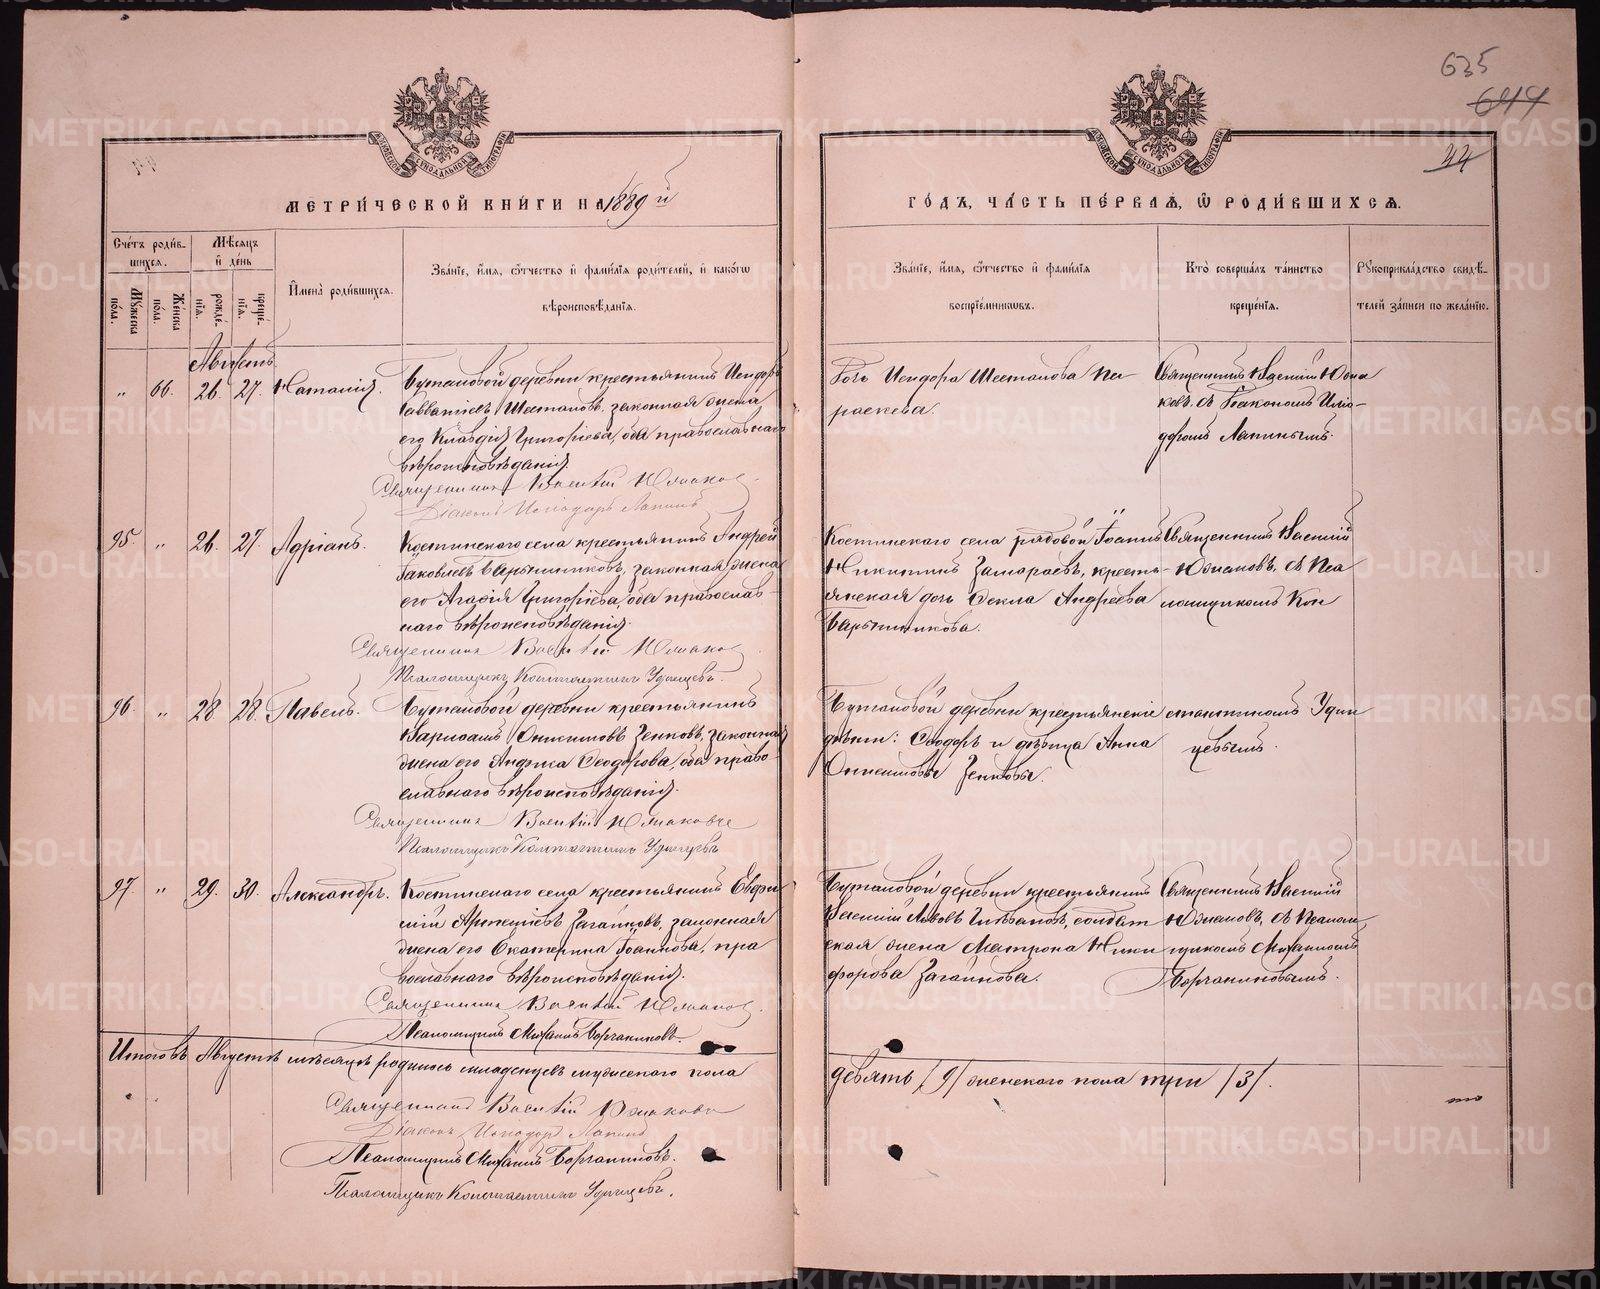 635
644
44
МЕТРИЧЕСКОЙ КНИГИ НА 1889 й
ГОДЪ, ЧАСТЬ ПЕРВАЯ, Ѡ РОДИВШИХСЯ.
Счетъ родив-
шихся.
Мѣсяцъ
и день
Имена родившихся.
Званіе, имя, отчество и фамилія родителей, и какогѡ
вѣроисповѣданія.
Званіе, имя, отчество и фамилія
воспріемниковъ.
Кто совершалъ таинство
крещенія.
Рукоприкладство свидѣ-
телей записи по желанію.
Мужеска
пола.
Женска
пола.
рожде-
нія.
креще-
нія.
Августъ
„ 66. 26. 27. Наталія.
Бутаковой деревни крестьянинъ Исидоръ
Савватіевъ Шестаковъ, законная жена
его Клавдія Григоріева, оба православнаго
вѣроисповѣданія.
Священникъ Василій Южаковъ.
Діаконъ Иліодоръ Лапинъ
Дочь Исидора Шестакова Па-
раскева.
Священникъ Василій Южа
ковъ съ Діакономъ Иліо-
доромъ Лапинымъ.
95. „ 26. 27. Адріанъ.
Костинскаго села крестьянинъ Андрей
Іаковлевъ Барышниковъ, законная жена
его Агафія Григоріева, оба православ-
наго вѣроисповѣданія.
Священникъ Василій Южаковъ
Псаломщикъ Константинъ Удинцевъ.
Костинскаго села рядовой Іоаннъ
Никитинъ Замараевъ, кресть-
янская дочь Ѳекла Андреева
Барышникова.
Священникъ Василій
Южаковъ, съ Пса
ломщикомъ Кон
96. „ 28 28. Павелъ.
Бутаковой деревни крестьянинъ
Варлаамъ Онисимовъ Зенковъ, законная
жена его Анфиса Ѳеодорова, оба право-
славнаго вѣроисповѣданія.
Священникъ Василій Южаковъ
Псаломщикъ Константинъ Удинцевъ
Бутаковой деревни крестьянскіе
дѣти: Ѳеодоръ и дѣвица Анна
Онисимовы Зенковы.
стантиномъ Удин
цевымъ.
97. „ 29. 30. Александръ.
Костинскаго села крестьянинъ Евфи-
мій Артеміевъ Загайновъ, законная
жена его Екатерина Іоаннова, пра
вославнаго вѣроисповѣданія.
Священникъ Василій Южаковъ.
Псаломщикъ Михаилъ Борчаниновъ.
Бутаковой деревни крестьянинъ
Василій Львовъ солдат
ская жена Матрона Ники
форова Загайнова.
Священникъ Василій
Южаковъ, съ Псалом
щикомъ Михаиломъ
Борчаниновымъ.
Итого въ Августѣ мѣсяцѣ родилось младенцевъ мужескаго пола
девять /9/ женскаго пола три /3/.
Священникъ Василій Южаковъ
Діаконъ Иліодоръ Лапинъ
Псаломщикъ Михаилъ Борчаниновъ.
Псаломщикъ Константинъ Удинцевъ.
METRIKI.GASO-URAL.RU